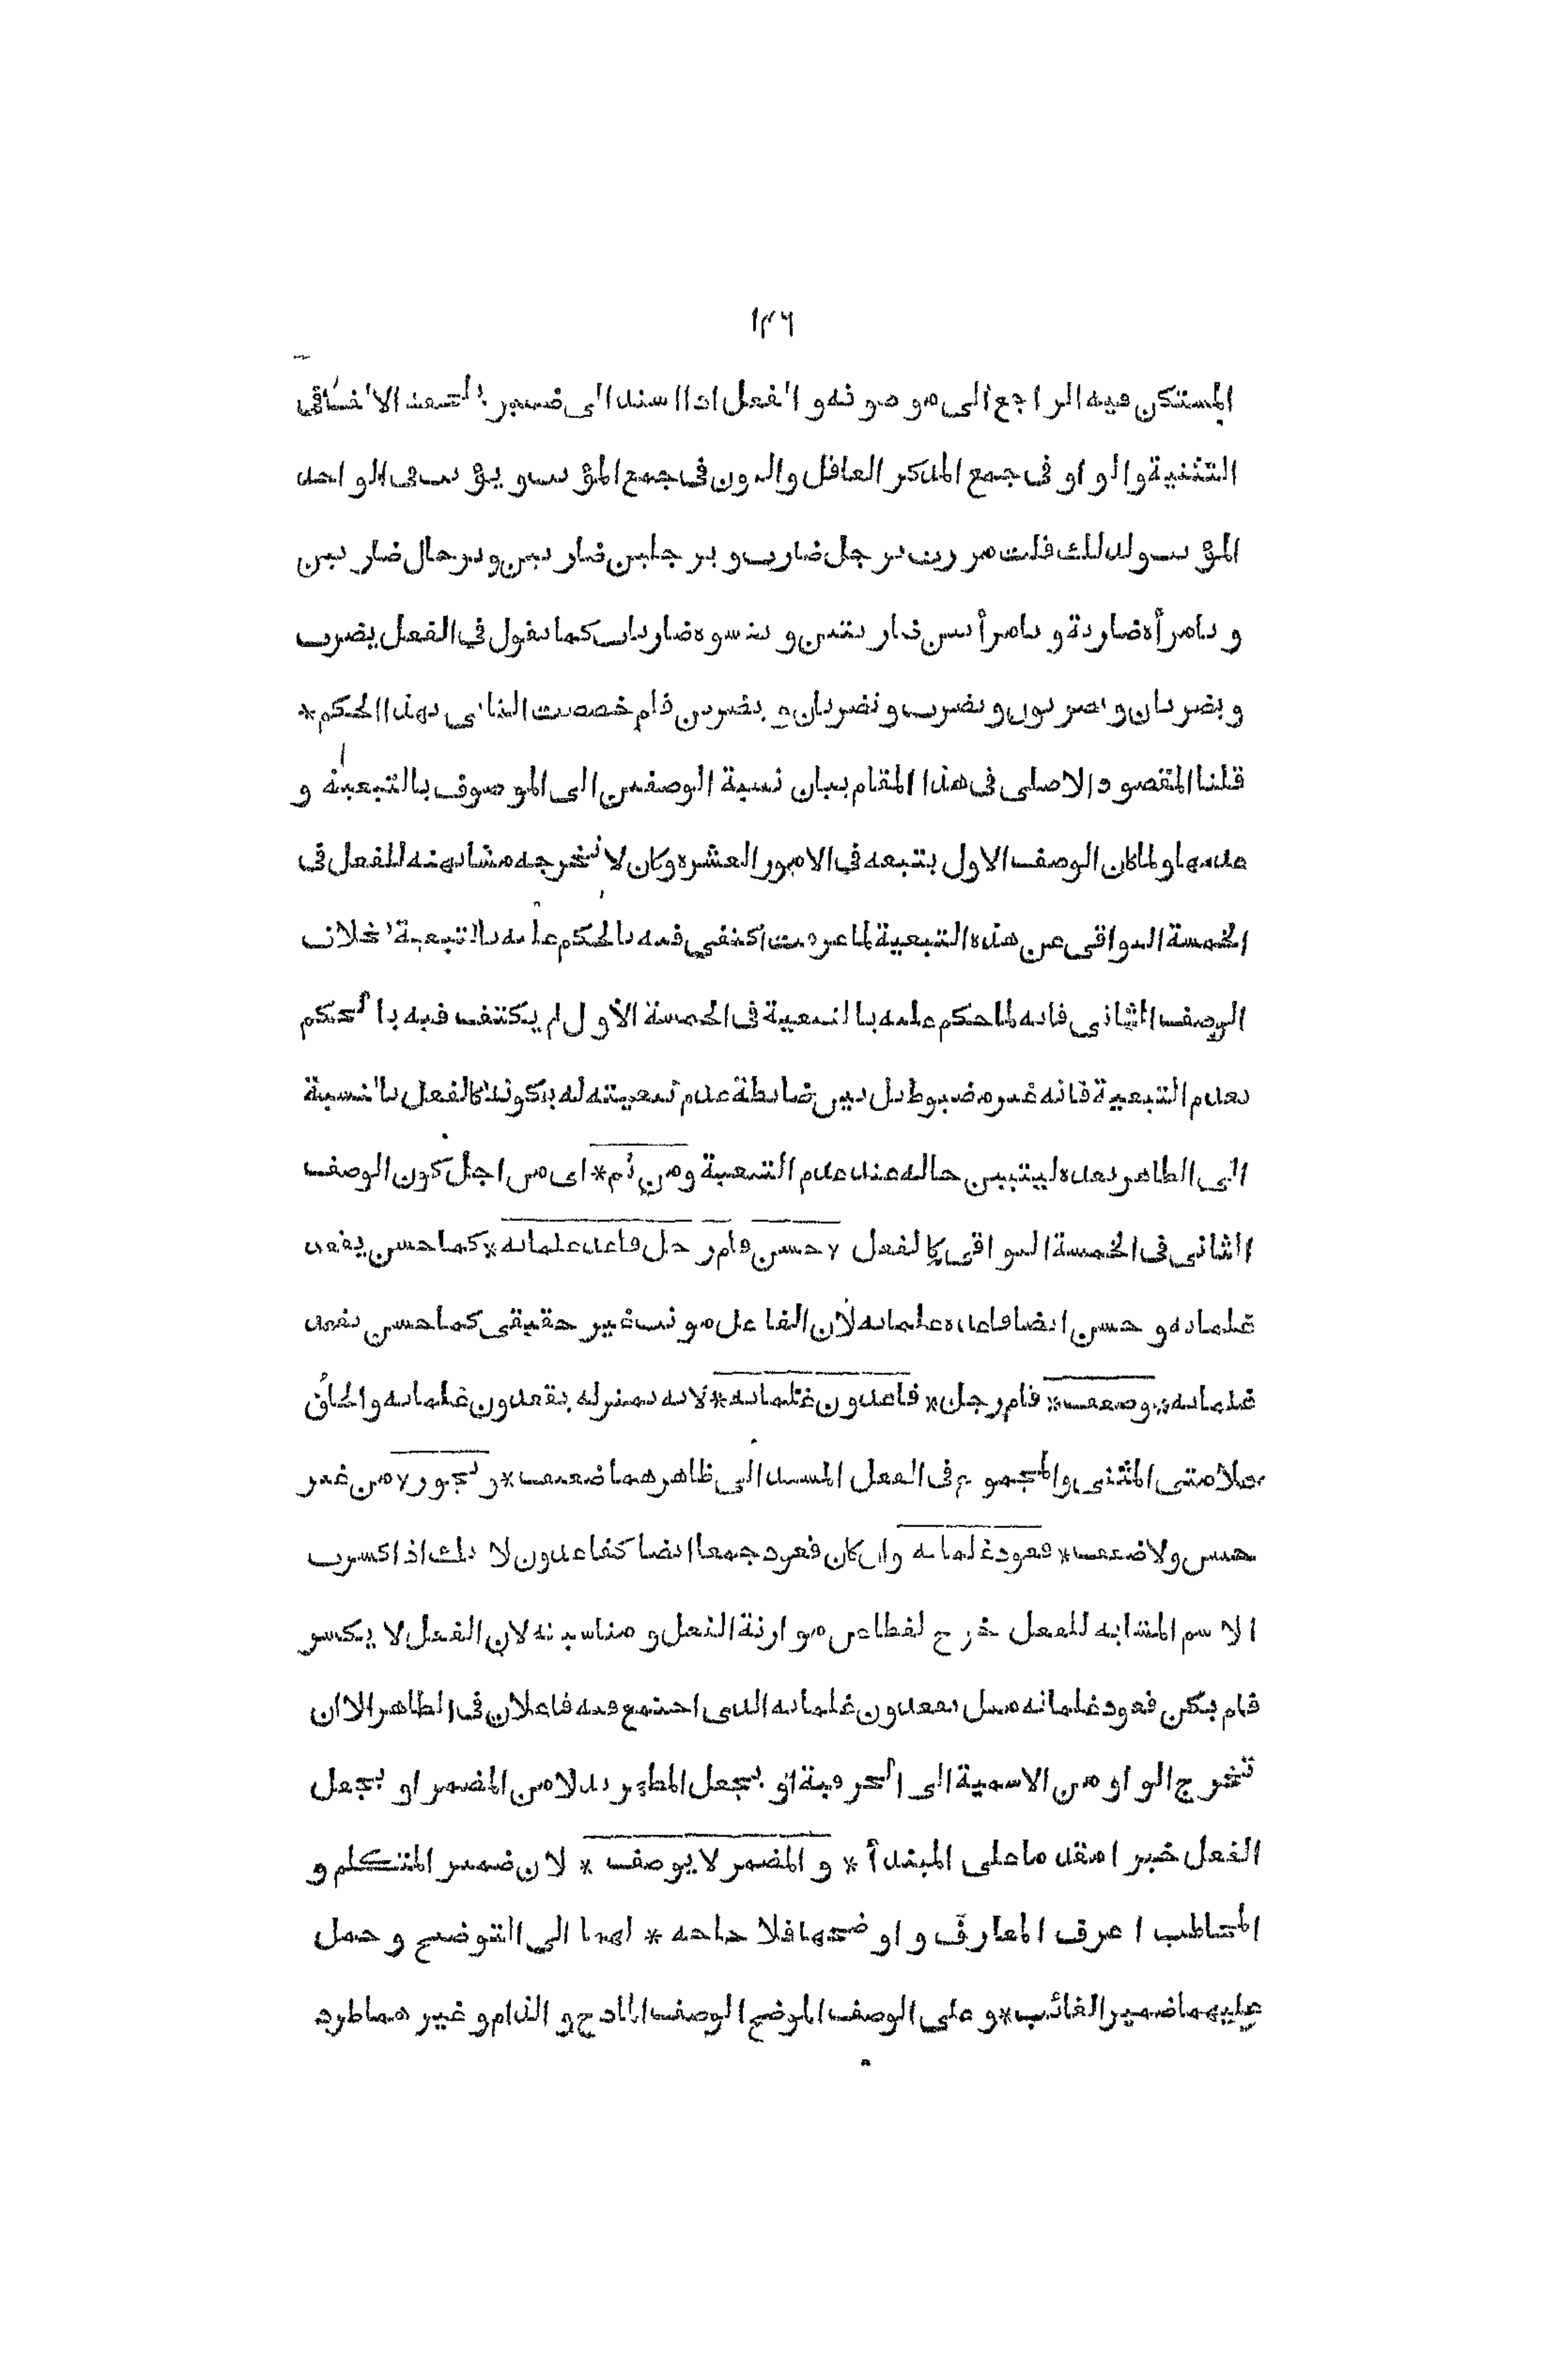 ١٣٦
المستكن فيه الراجع الى موصوفه والفعل اذا اسند الى ضمير يلحقه الالف فى
التثنية والواو فى جمع المذكر العاقل والنون فى جمع المؤنث ويؤنث فى الواحد
المؤنث ولذلك قلت مررت برجل ضارب وبرجلين ضاربين وبرجال ضاربين
وبامرأة ضاربة وبامرأتين ضاربتين وبنسوة ضاربات كما تقول فى الفعل يضرب
ويضربان ويضربون وتضرب وتضربان ويضربن فلم خصصت الثانى بهذا الحكم *
قلنا المقصود الاصلى فى هذا المقام بيان نسبة الوصفين الى الموصوف بالتبعية و
عدمها ولما كان الوصف الاول يتبعه فى الامور العشرة وكان لا يخرجه مشابهته للفعل فى
الخمسة البواقى عن هذه التبعية لما عرفت اكتفى فيه بالحكم عليه بالتبعية بخلاف
الوصف الثانى فانه لما حكم عليه بالتبعية فى الخمسة الاول لم يكتف فيه بالحكم
بعدم التبعية فانه غير مضبوط بل بين ضابطة عدم تبعيته له بكونه كالفعل بالنسبة
الى الظاهر بعده ليتبين حاله عند عدم التبعية ومن ثم * اى من اجل كون الوصف
الثانى فى الخمسة البواقى كالفعل * حسن قام رجل قاعد غلمانه * كما حسن يقعد
غلمانه وحسن ايضا قاعدة غلمانه لان الفاعل مونث غير حقيقى كما حسن تقعد
غلمانه * وضعف * قام رجل * قاعدون غلمانه * لانه بمنزلة يقعدون غلمانه والحاق
علامتى المثنى والمجموع فى الفعل المسند الى ظاهرهما ضعيف * ويجوز * من غير
حسن ولا ضعف * قعود غلمانه وان كان قعود جمعا ايضا كقاعدون لانك اذا كسرت
الاسم المشابه للفعل خرج لفظا عن موازنة الفعل ومناسبته لان الفعل لا يكسر
فلم يكن قعود غلمانه مثل يقعدون غلمانه الذى اجتمع فيه فاعلان فى الظاهر الا ان
تخرج الواو من الاسمية الى الحرفية او يجعل المظهر بدلا من المضمر او يجعل
الفعل خبرا مقدما على المبتدأ * والمضمر لا يوصف * لان ضمير المتكلم و
المخاطب اعرف المعارف واوضحها فلا حاجة * لهما الى التوضيح وحمل
عليهما ضمير الغائب * وعلى الوصف الموضح الوصف المادح والذام وغيرهما طرد